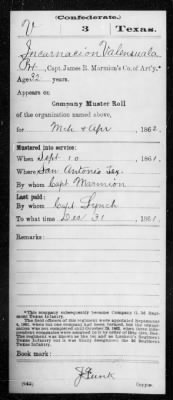 (Confederate.)
V 3 Texas.
Incarnacion Valensuala
Pt, Capt. James R. Marmion's Co. of Art'y.*
Age 32 years.
Appears on
Company Muster Roll
of the organization named above,
for Mch & Apr, 1862.
Mustered into service:
When Sept 10, 1861.
Where San Antonio Tex.
By whom Capt Marmion
Last paid:
By whom Capt Lynch
To what time Dec 31, 1861.
Remarks:
*This company subsequently became Company G, 3d Regiment Texas Infantry.
Book mark:
(642) Copyist.